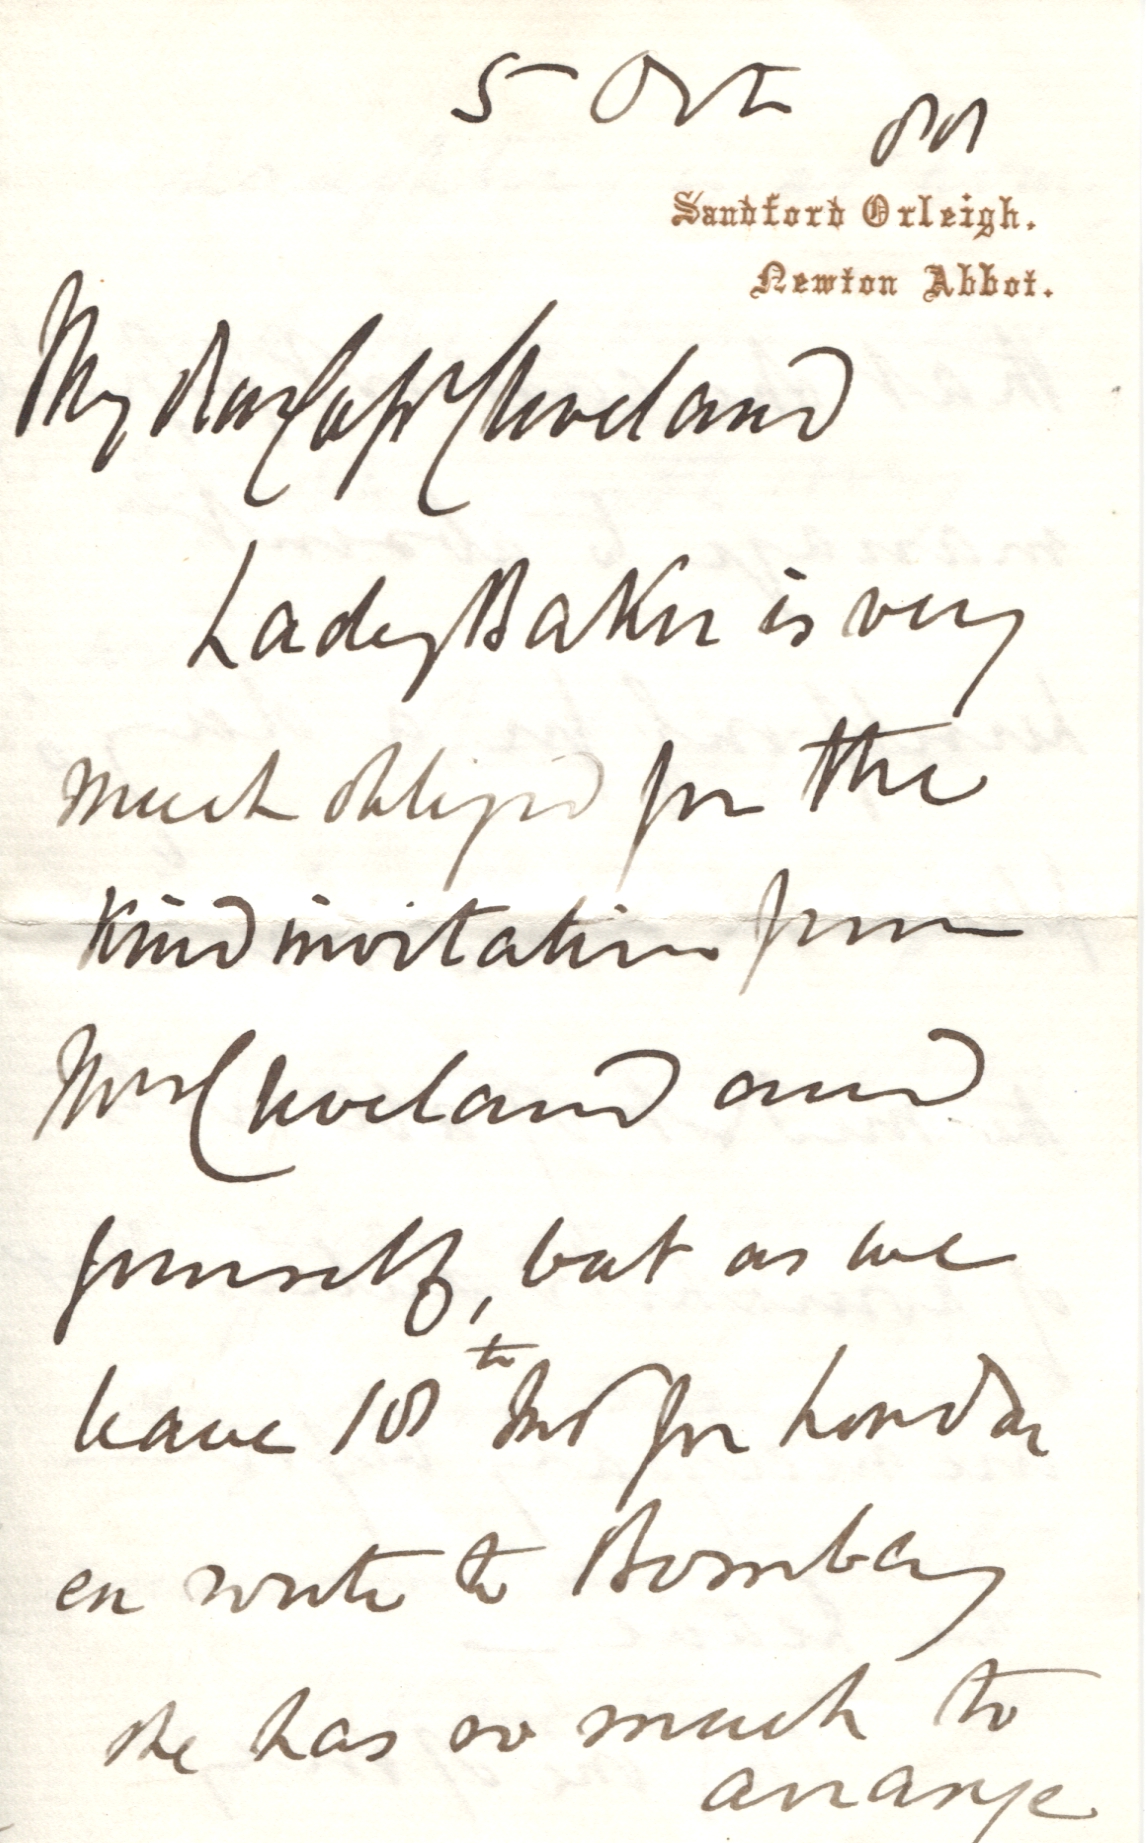 5 Oct 88
Sandford Orleigh.
Newton Abbot.
My dear Capt Cleveland
Lady Baker is very
much obliged for the
kind invitation from
Mrs Cleveland and
yourself, but as we
leave 18th Inst for London
en route to Bombay
she has so much to
arrange